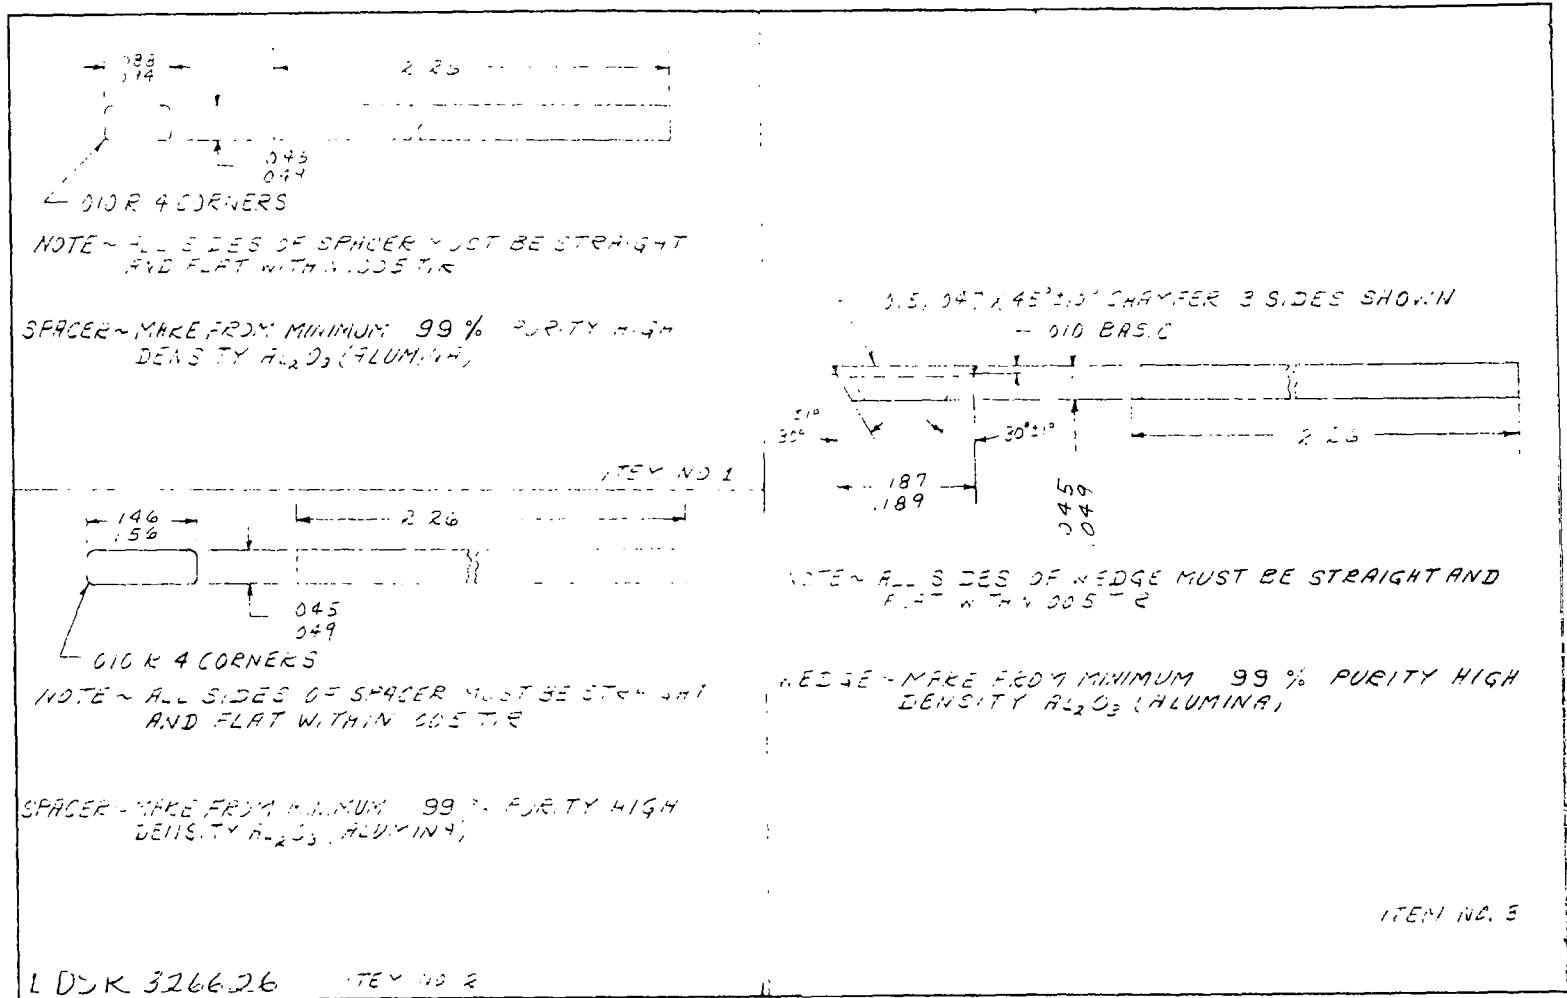 2 26
010 R 4 CORNERS
NOTE ~ ALL SIDES OF SPACER MUST BE STRAIGHT
AND FLAT WITHIN .005 TIR
SPACER ~ MAKE FROM MINIMUM 99 % PURITY HIGH
DENSITY AL2O3 (ALUMINA)
ITEM NO 1
.146
.156
2 26
045
049
010 R 4 CORNERS
NOTE ~ ALL SIDES OF SPACER MUST BE STRAIGHT
AND FLAT WITHIN 005 TIR
SPACER ~ MAKE FROM MINIMUM 99 % PURITY HIGH
DENSITY AL2O3 (ALUMINA)
ITEM NO 2
CHAMFER 3 SIDES SHOWN
010 BASIC
±1°
30°
30°±1°
2 26
.187
.189
.045
.049
NOTE ~ ALL SIDES OF WEDGE MUST BE STRAIGHT AND
FLAT WITHIN 005 TIR
WEDGE ~ MAKE FROM MINIMUM 99 % PURITY HIGH
DENSITY AL2O3 (ALUMINA)
ITEM NO. 3
326626